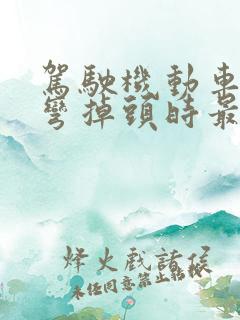 駕駛機動車
彎掉頭時最
烽火戲諸侯
未任同意禁止轉載